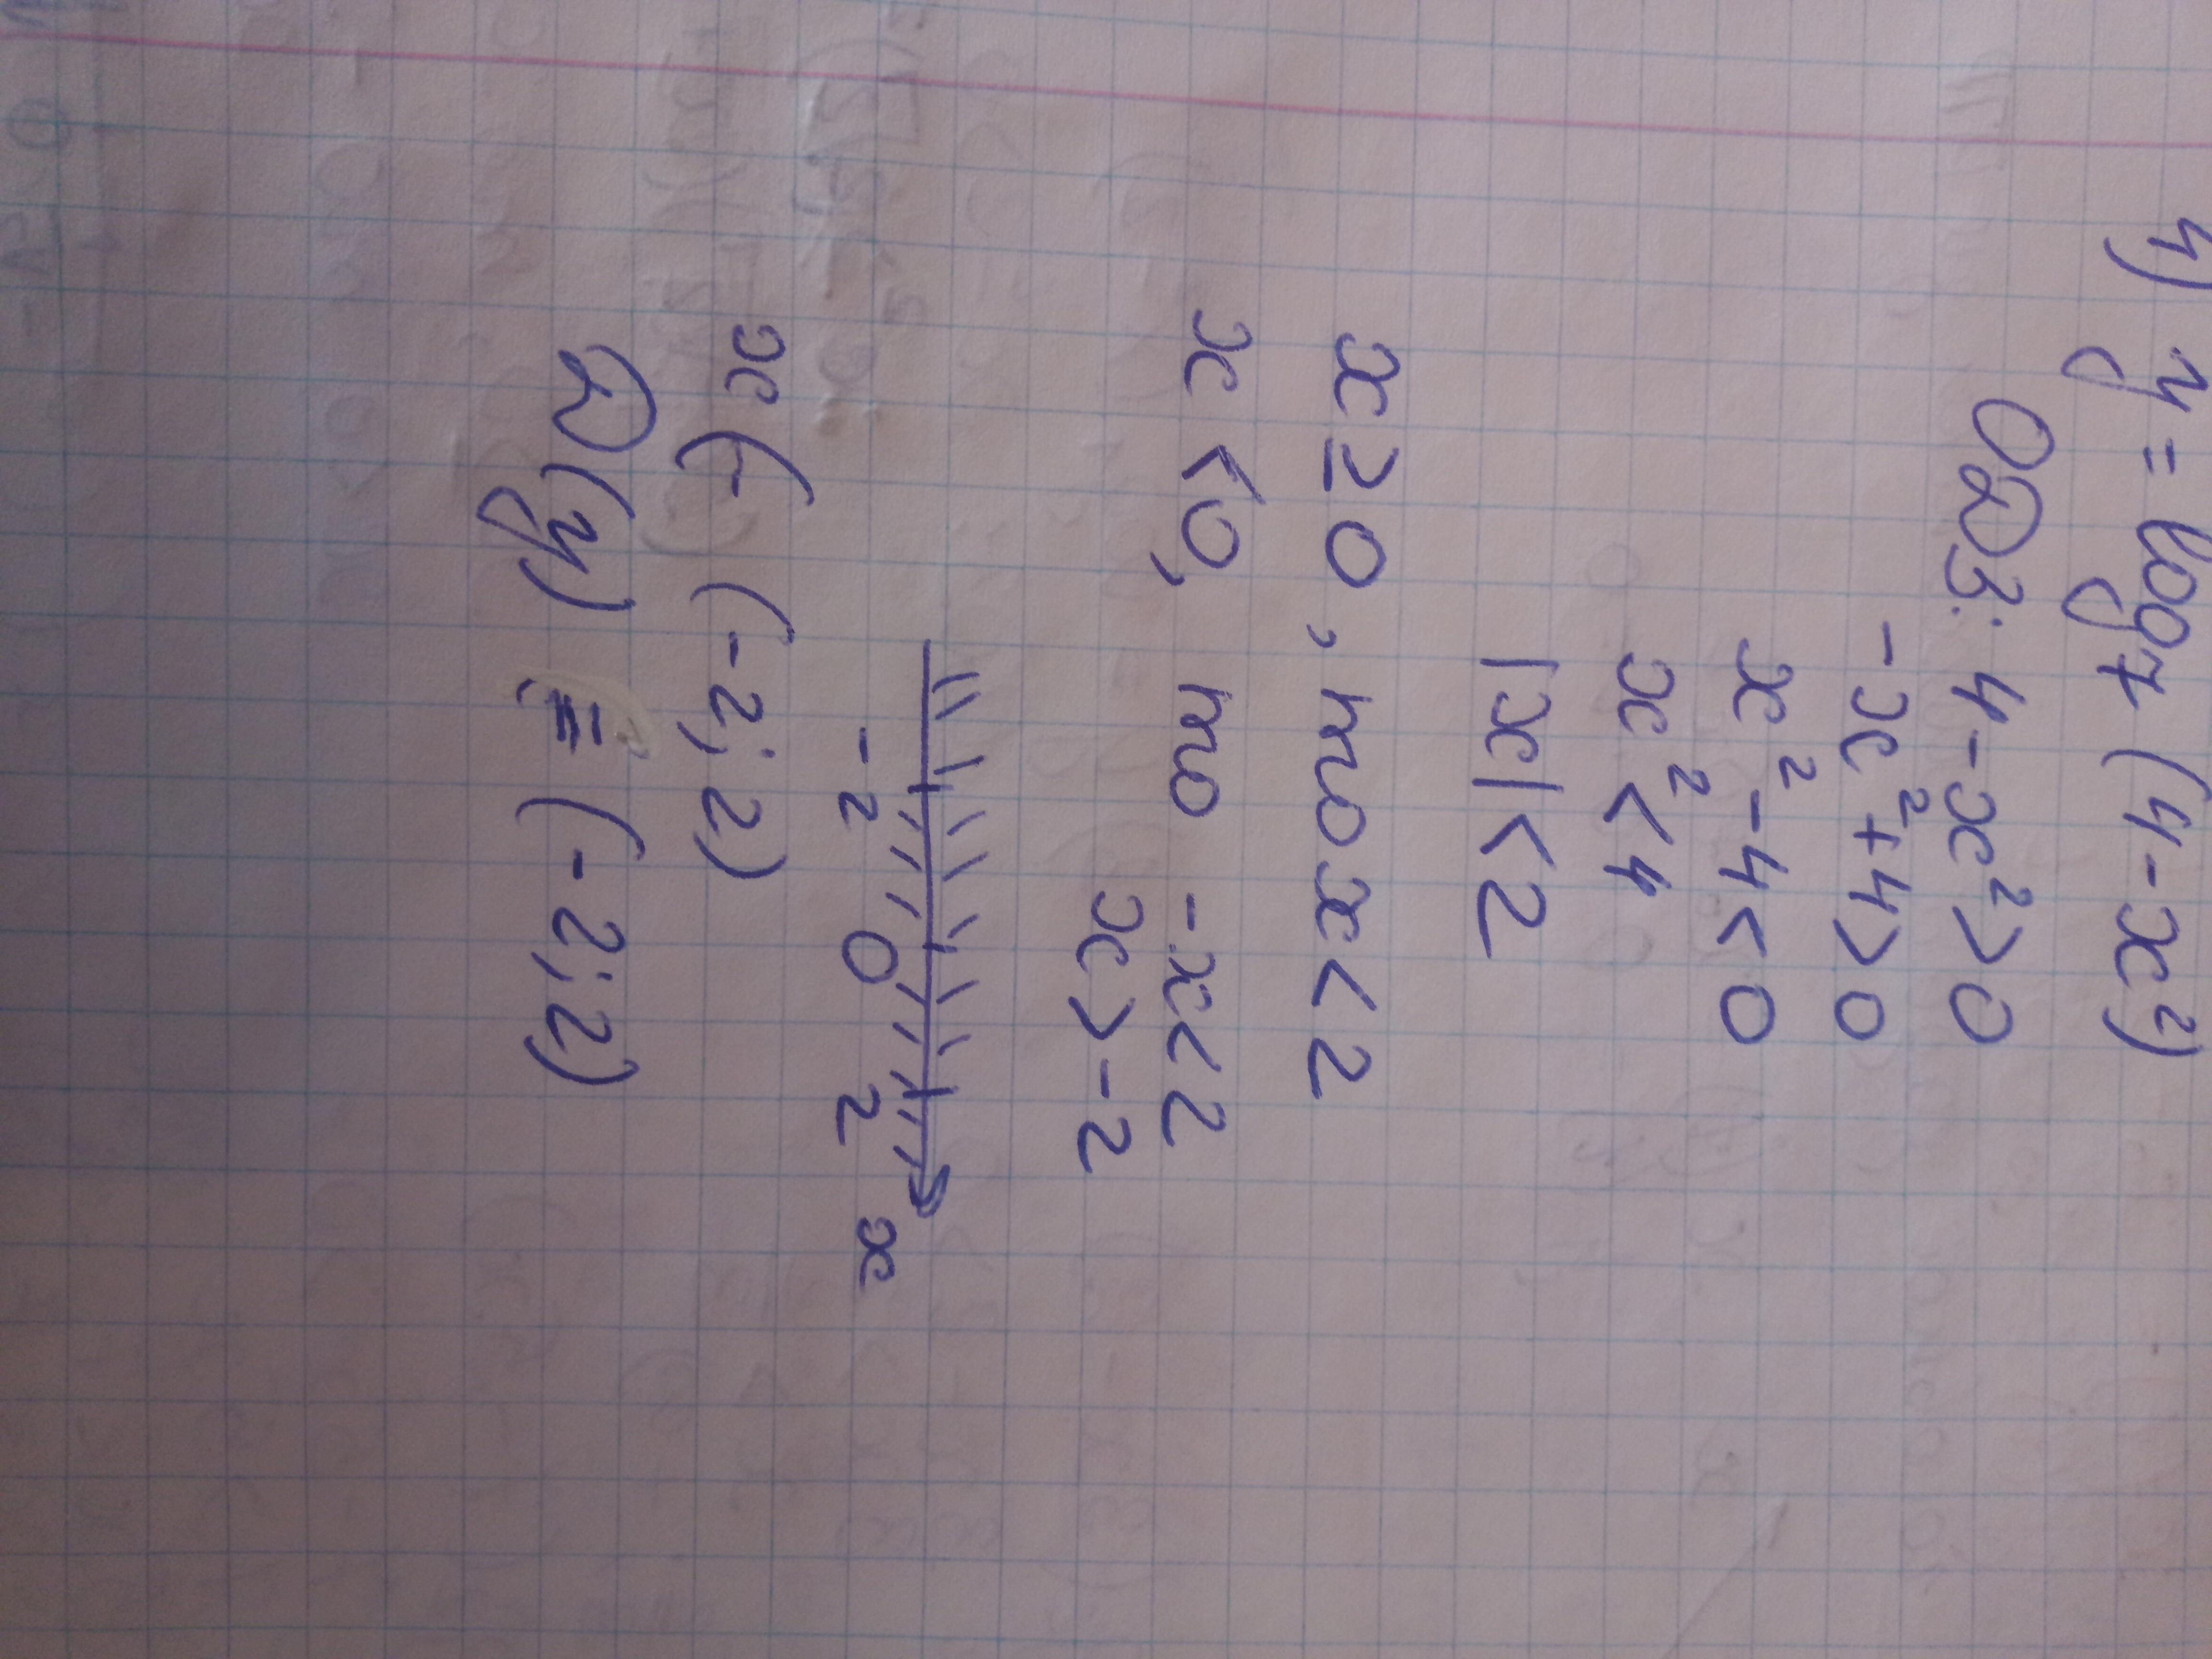 4) y = log₇ (4-x²)
ОДЗ: 4-x²>0
-x²+4>0
x²-4<0
x²<4
|x|<2
x≥0, то x<2
x<0, то -x<2
x>-2
-2 0 2 x
x (- (-2; 2)
D(y) = (-2; 2)